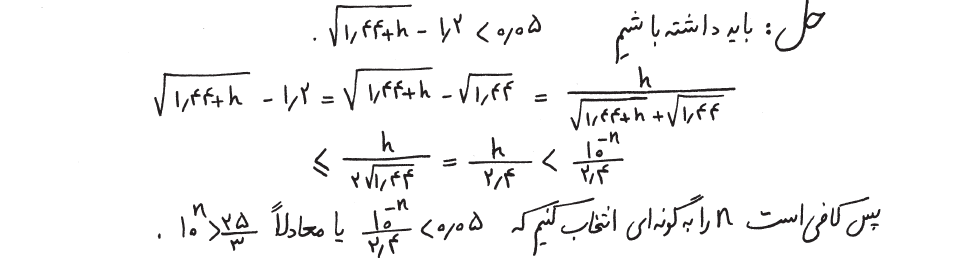 حل: باید داشته باشیم √(۱٫۴۴+h) - ۱٫۲ < ۰٫۰۵ .
√(۱٫۴۴+h) - ۱٫۲ = √(۱٫۴۴+h) - √۱٫۴۴ = h/(√(۱٫۴۴+h) + √۱٫۴۴)
≤ h/(۲√۱٫۴۴) = h/۲٫۴ < ۱۰^-n/۲٫۴
پس کافی است n را به گونه‌ای انتخاب کنیم که ۱۰^-n/۲٫۴ < ۰٫۰۵ یا معادلاً ۱۰^n > ۲۵/۳ .